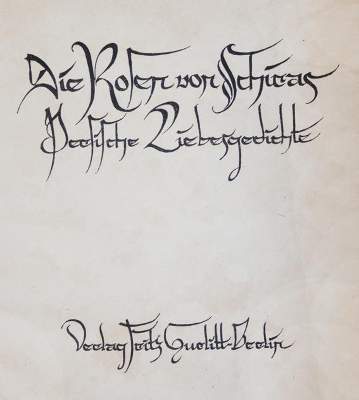 Die Rosen von Schiras
Persische Liebesgedichte
Verlag Fritz Gurlitt-Berlin